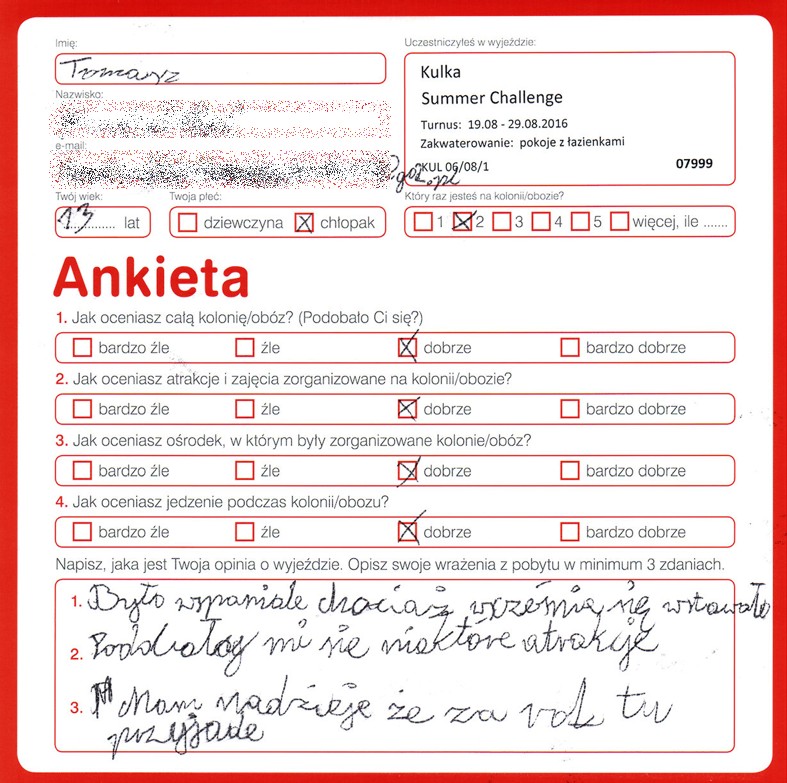 Imię:
Tomasz
Uczestniczyłeś w wyjeździe:
Kulka
Summer Challenge
Turnus: 19.08 - 29.08.2016
Zakwaterowanie: pokoje z łazienkami
KUL 06/08/1 07999
Nazwisko:
e-mail:
Twój wiek:
13 lat
Twoja płeć:
dziewczyna chłopak
Który raz jesteś na kolonii/obozie?
1 2 3 4 5 więcej, ile .......
Ankieta
1. Jak oceniasz całą kolonię/obóz? (Podobało Ci się?)
bardzo źle źle dobrze bardzo dobrze
2. Jak oceniasz atrakcje i zajęcia zorganizowane na kolonii/obozie?
bardzo źle źle dobrze bardzo dobrze
3. Jak oceniasz ośrodek, w którym były zorganizowane kolonie/obóz?
bardzo źle źle dobrze bardzo dobrze
4. Jak oceniasz jedzenie podczas kolonii/obozu?
bardzo źle źle dobrze bardzo dobrze
Napisz, jaka jest Twoja opinia o wyjeździe. Opisz swoje wrażenia z pobytu w minimum 3 zdaniach.
1. Było wspaniale chociaż się wstawało
2. mi się niektóre atrakcje
3. Mam nadzieje że za rok tu
przyjade